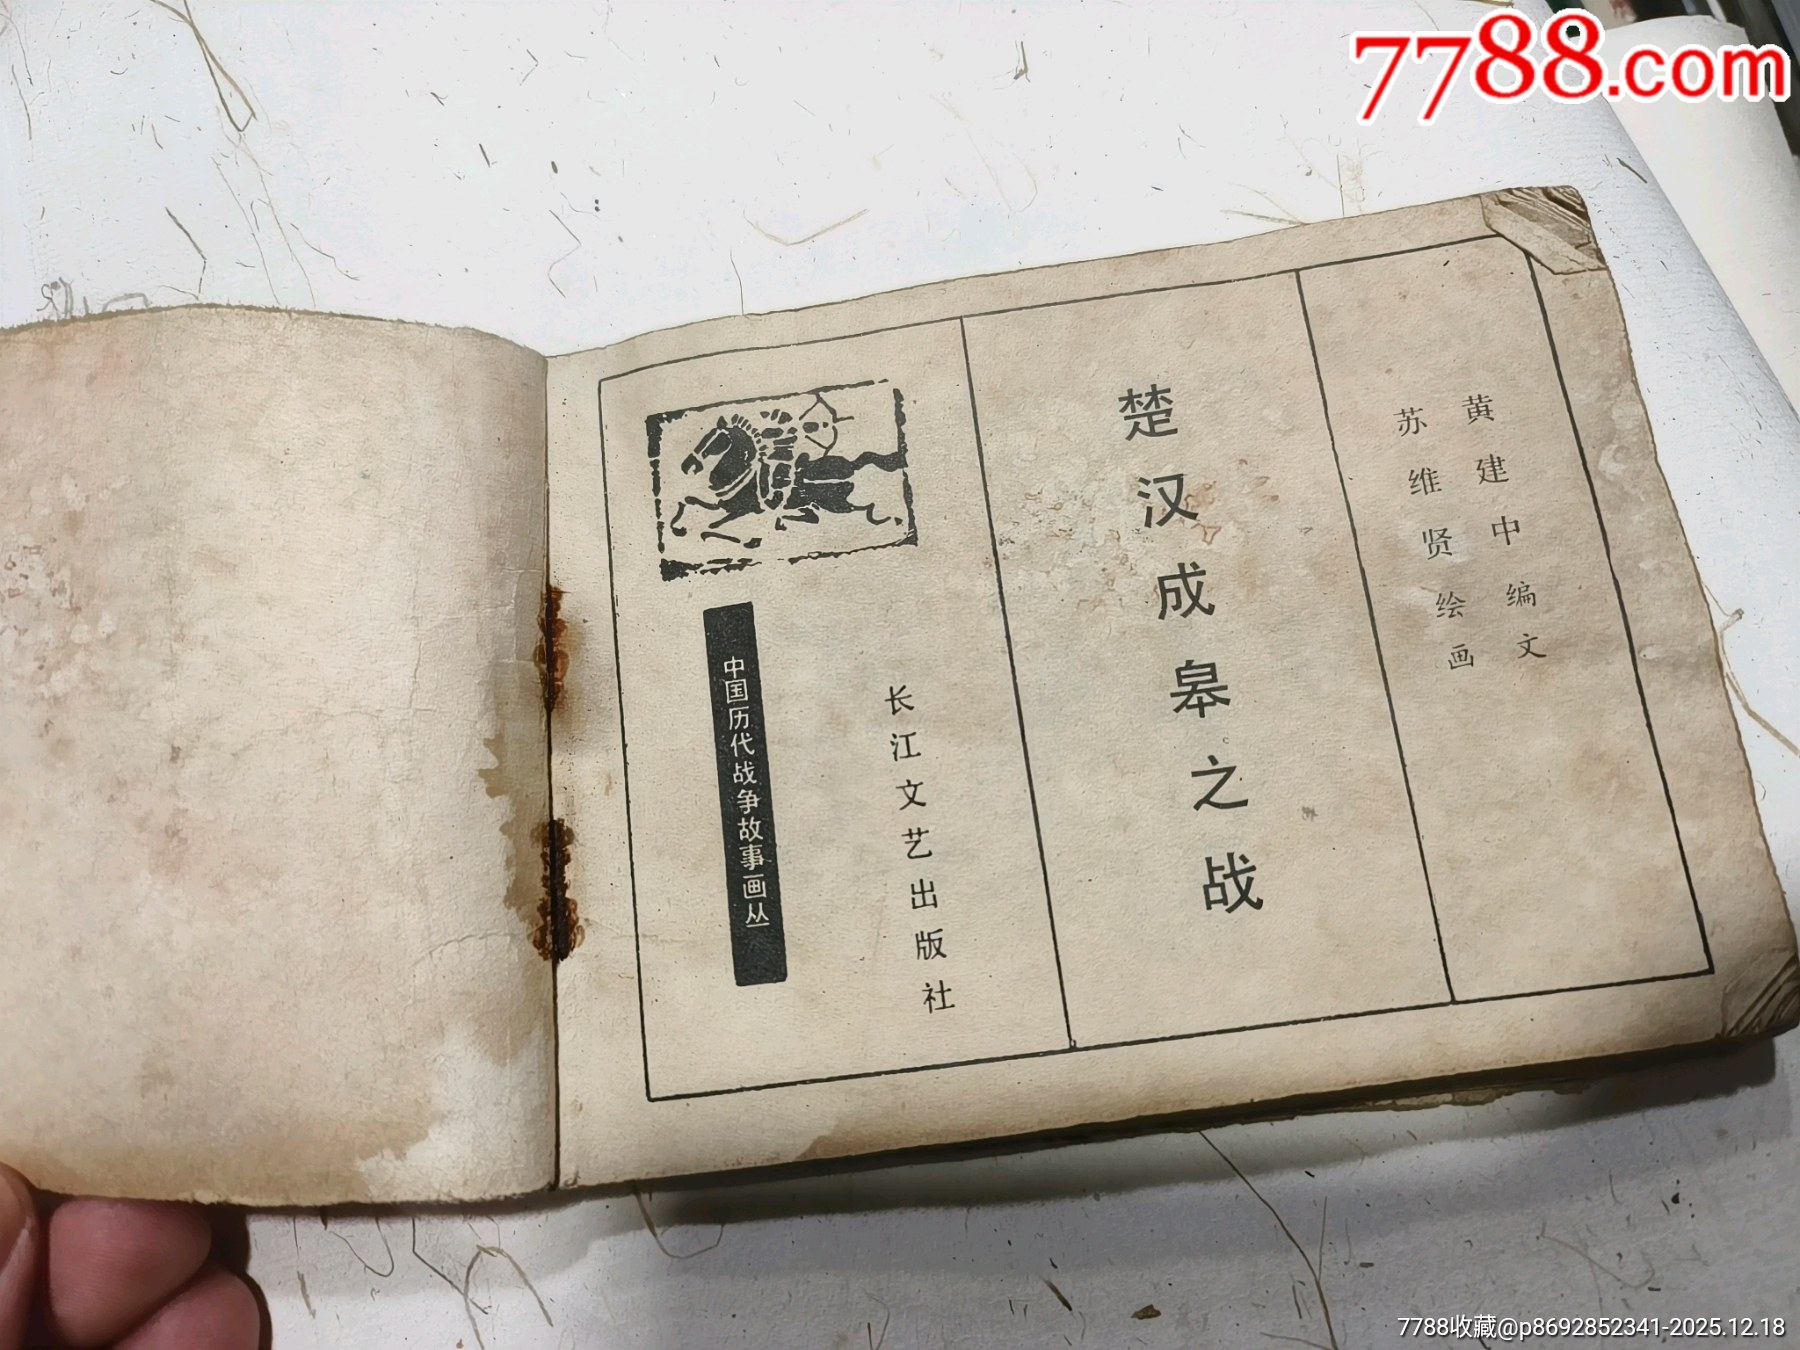 7788.com
黄建中编文
苏维贤绘画
楚汉成皋之战
长江文艺出版社
中国历代战争故事画丛
7788收藏@p8692852341-2025.12.18